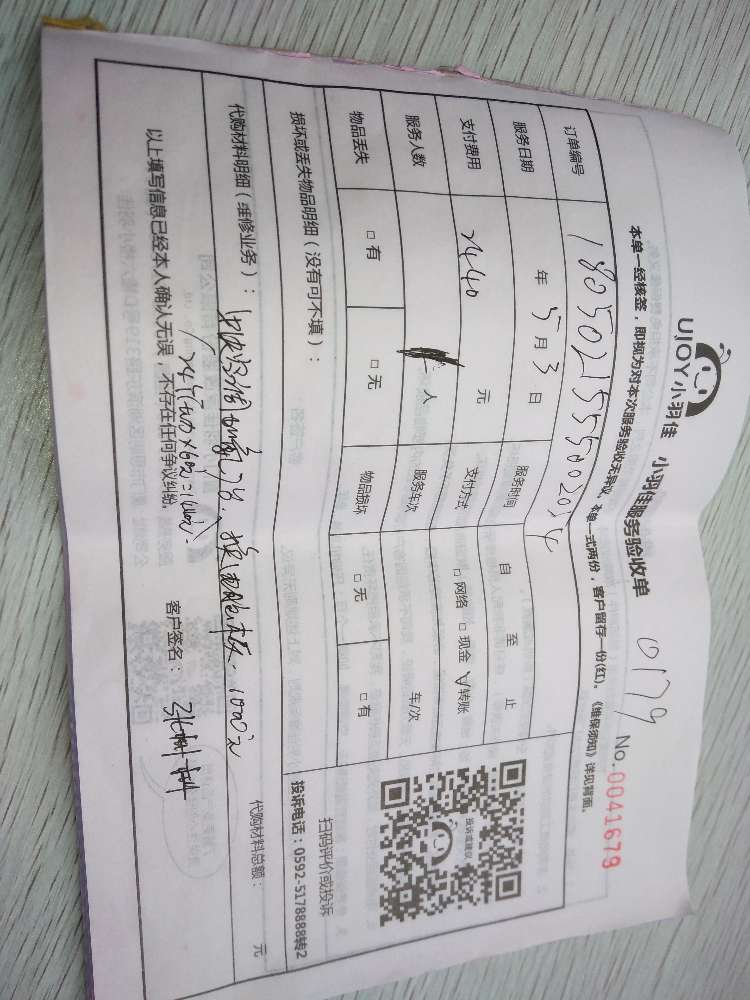 UJOY小羽佳 小羽佳服务验收单
0179
No.0041679
本单一经核签，即视为对本次服务验收无异议，本单一式两份，客户留存一份(红)。《维保须知》详见背面。
订单编号
服务日期 年 5月3日 服务时间 自 至 止
支付费用 2440 元 支付方式 □网络 □现金 √转账
服务人数 人 服务车次 车/次
物品丢失 □有 □无 物品损坏 □无 □有
投诉或建议
扫码评价或投诉
投诉电话：0592-5178888转2
损坏或丢失物品明细（没有可不填）：
代购材料明细（维修业务）： 换电脑板 1000元
代购材料总额： 元
以上填写信息已经本人确认无误，不存在任何争议纠纷。
客户签名：